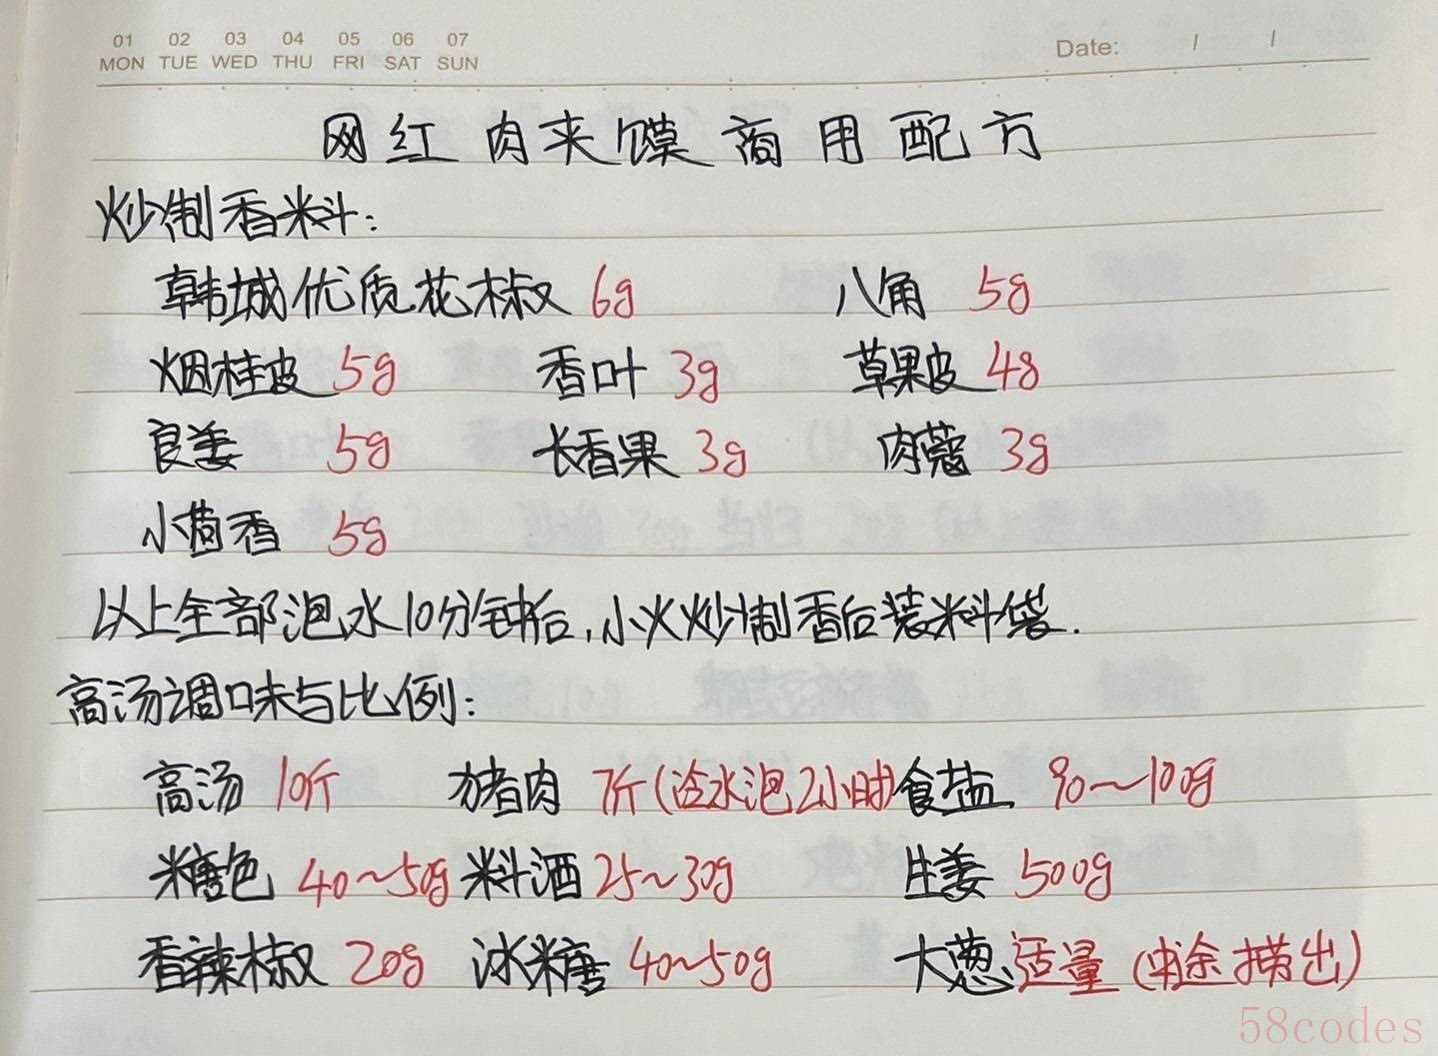 01 02 03 04 05 06 07
MON TUE WED THU FRI SAT SUN
Date: / /
网红肉夹馍商用配方
炒制香料:
韩城优质花椒 6g 八角 5g
烟桂皮 5g 香叶 3g 草果皮 4g
良姜 5g 长香果 3g 肉蔻 3g
小茴香 5g
以上全部泡水10分钟后,小火炒制香后装料袋.
高汤调味与比例:
高汤 10斤 猪肉 7斤(冷水泡2小时) 食盐 90~100g
糖色 40~50g 料酒 25~30g 生姜 500g
香辣椒 20g 冰糖 40~50g 大葱适量(中途捞出)
58codes